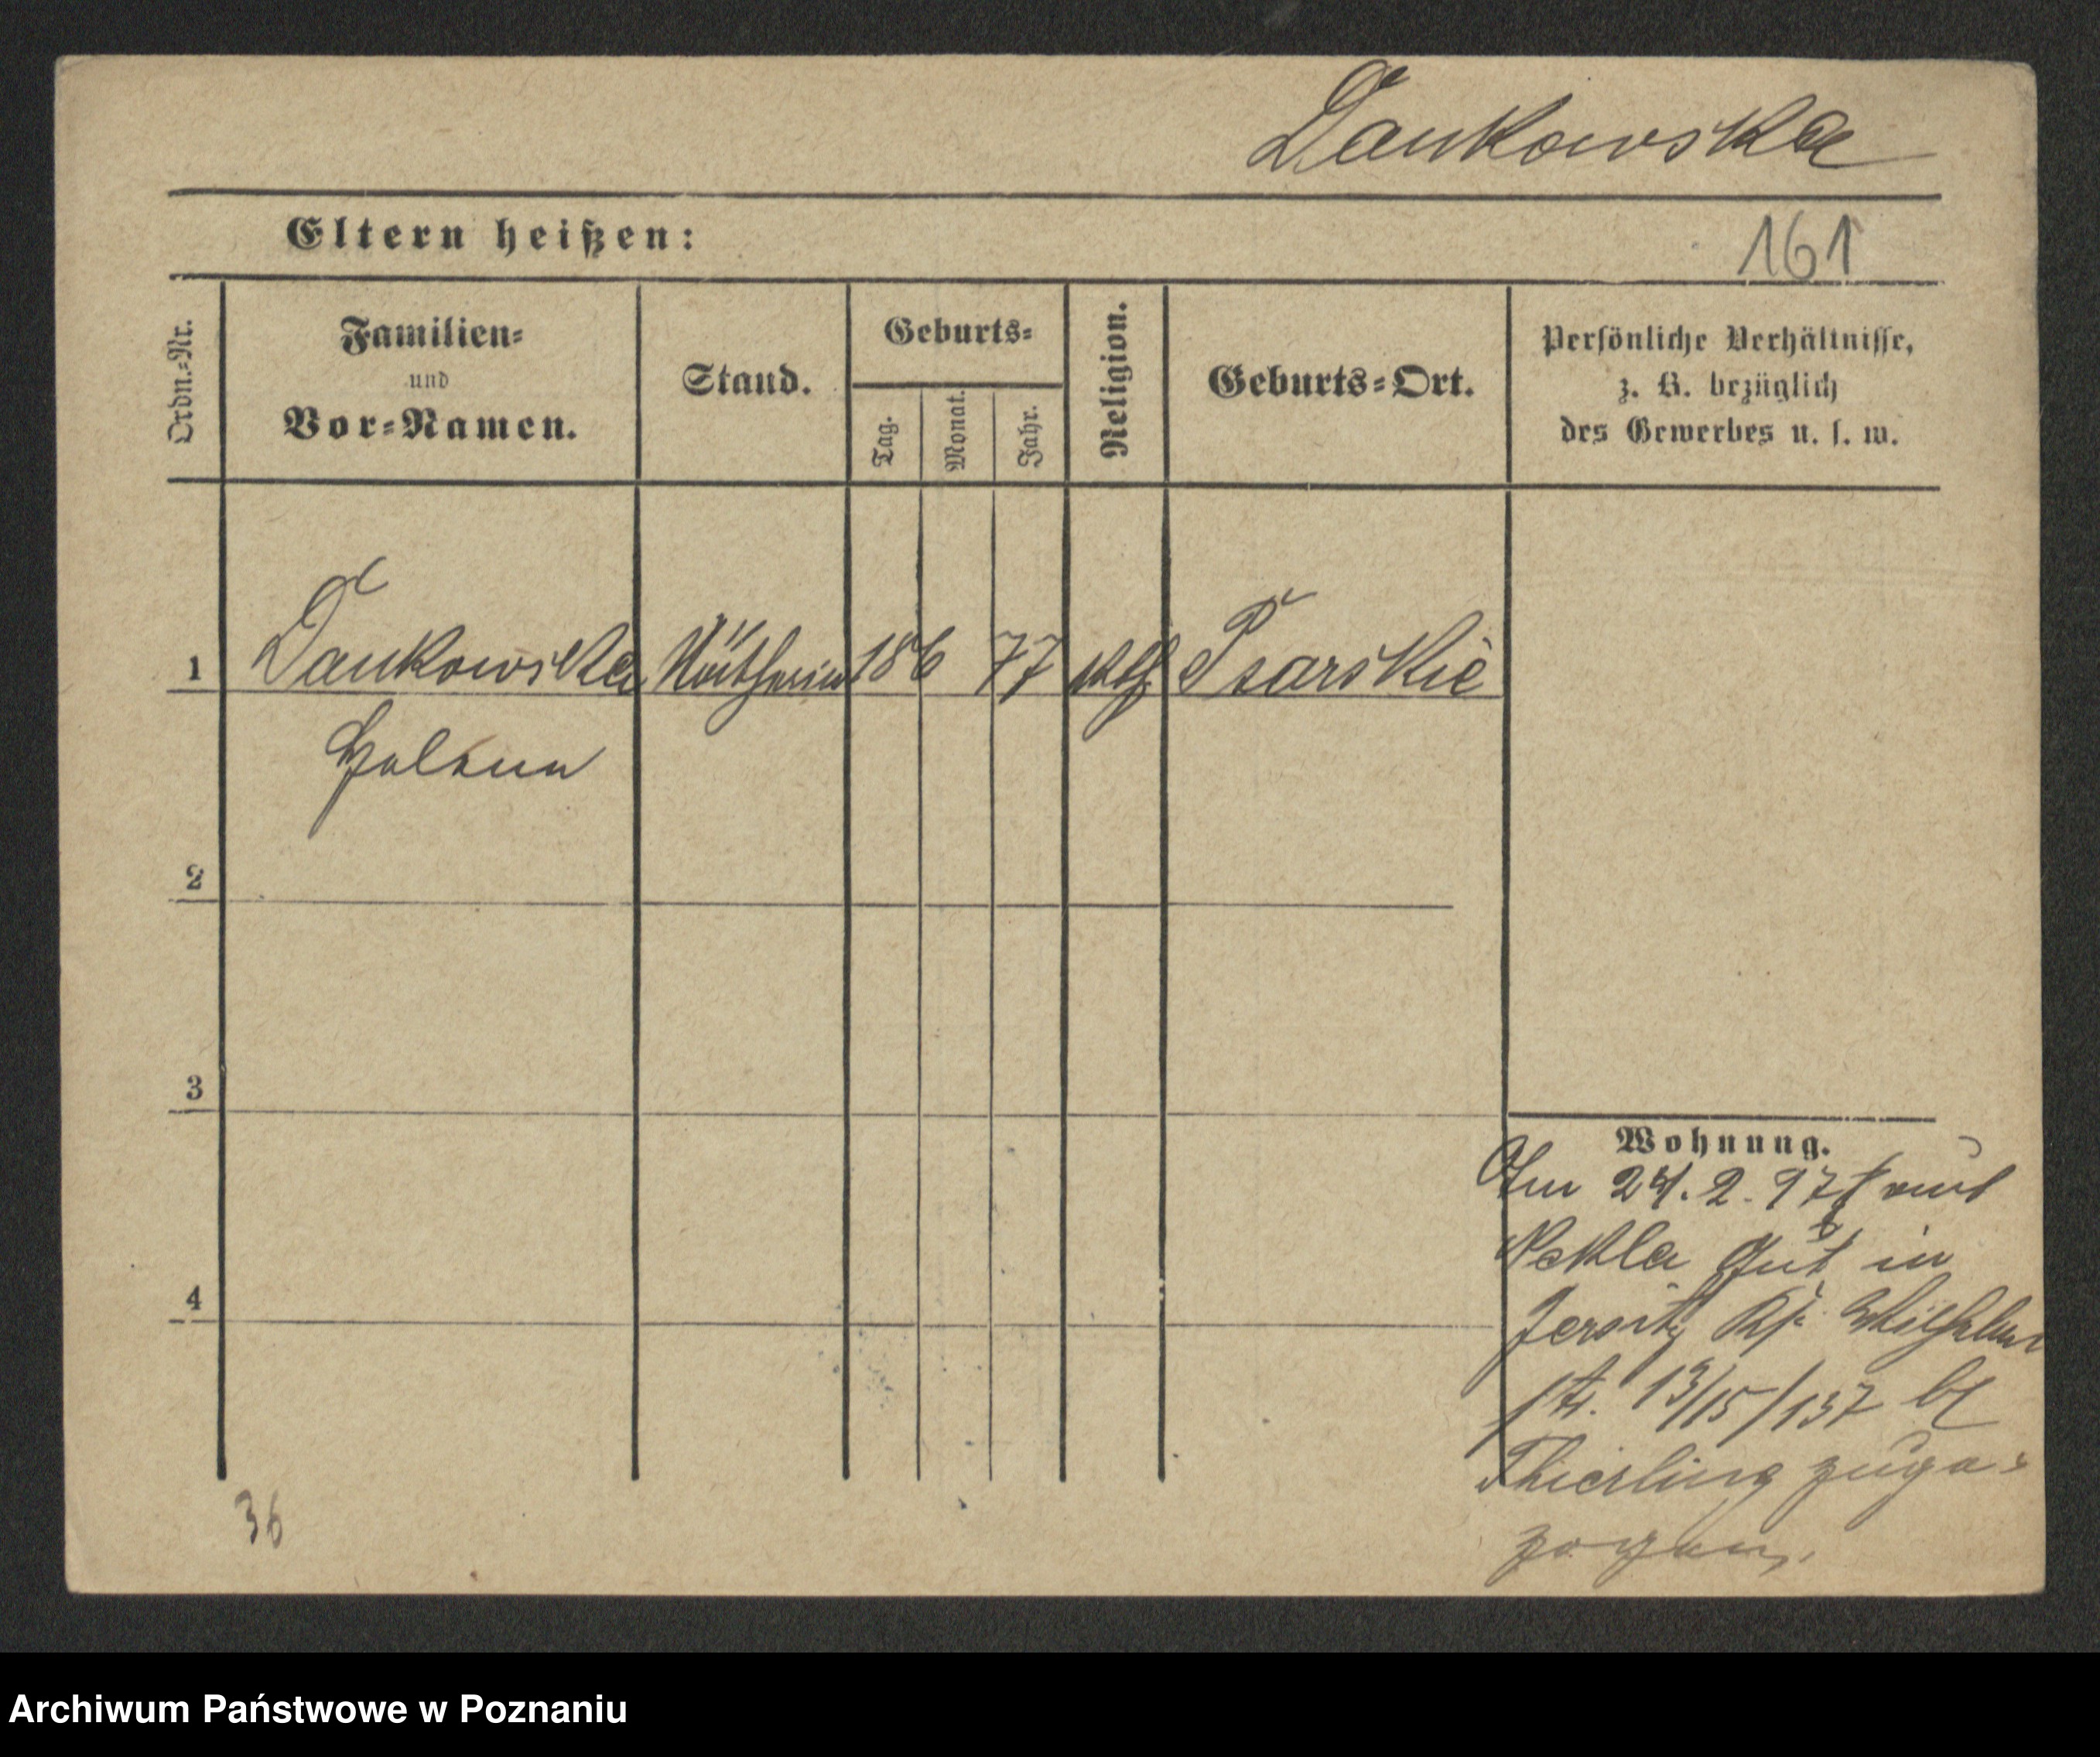 Dankowska
Eltern heißen:
161
Ordn.-Nr.
Familien-
und
Vor-Namen.
Stand.
Geburts-
Tag.
Monat.
Jahr.
Religion.
Geburts-Ort.
Persönliche Verhältnisse,
z. B. bezüglich
des Gewerbes u. s. w.
1 Dankowska Näätherin 18 6 77 kth Psarskie
Helene
2
3
4
Wohnung.
Am 24. 2. 97 aus
Nekla Gut in
Jersitz Kf. Wilhelm
str. 13/15/137 bei
Thierling zuge-
zogen.
36
Archiwum Państwowe w Poznaniu